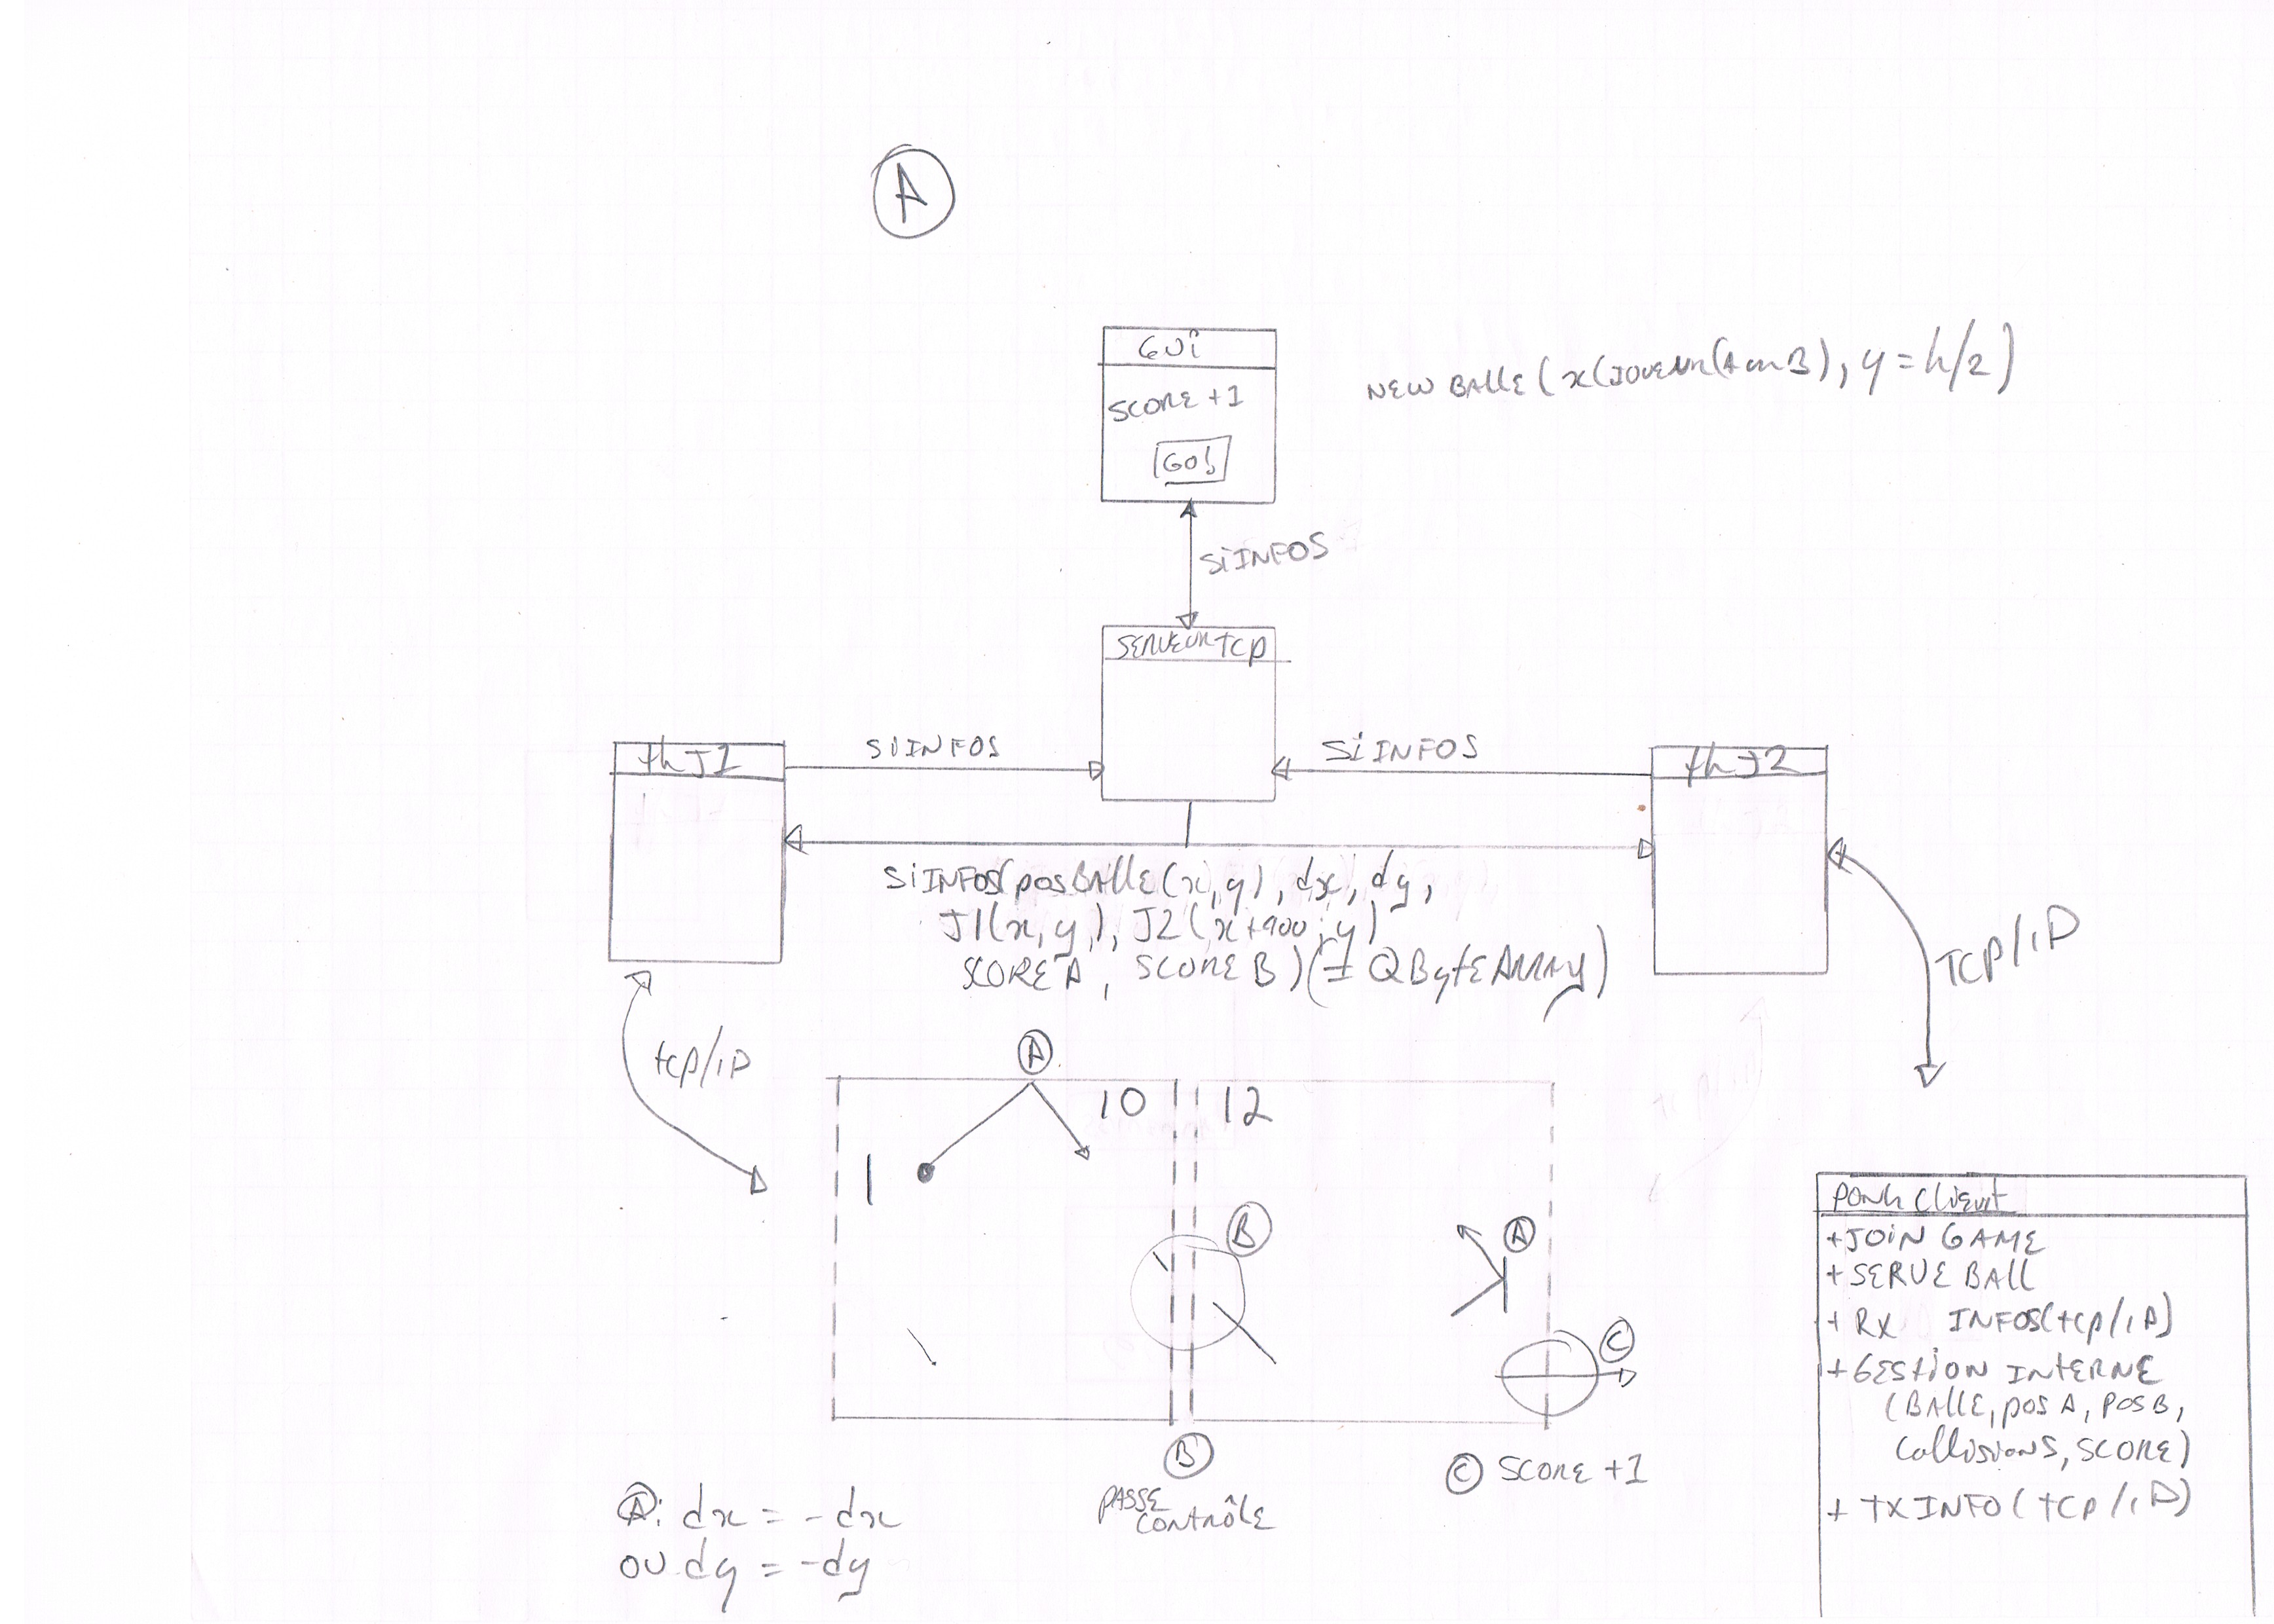 A
GUI
SCORE +1
GO!
NEW BALLE (x(JOUEUR(A ou B), y = h/2)
SiINFOS
SERVEUR TCP
thJ1
SiINFOS
SiINFOS
thJ2
SiINFOS(posBALLE(x,y), dx, dy,
J1(x,y), J2(x+900,y)
SCORE A, SCORE B) (1 QByteARRAy)
tcp/iP
TCP/iP
A
10
12
B
A
C
B
PASSE
CONTRÔLE
C SCORE +1
A: dx = -dx
OU dy = -dy
PONG Client
+JOIN GAME
+SERVE BALL
+ RX INFOS(tcp/iP)
+GESTION INTERNE
(BALLE, pos A, POS B,
Collisions, SCORE)
+ TX INFO (TCP/iP)